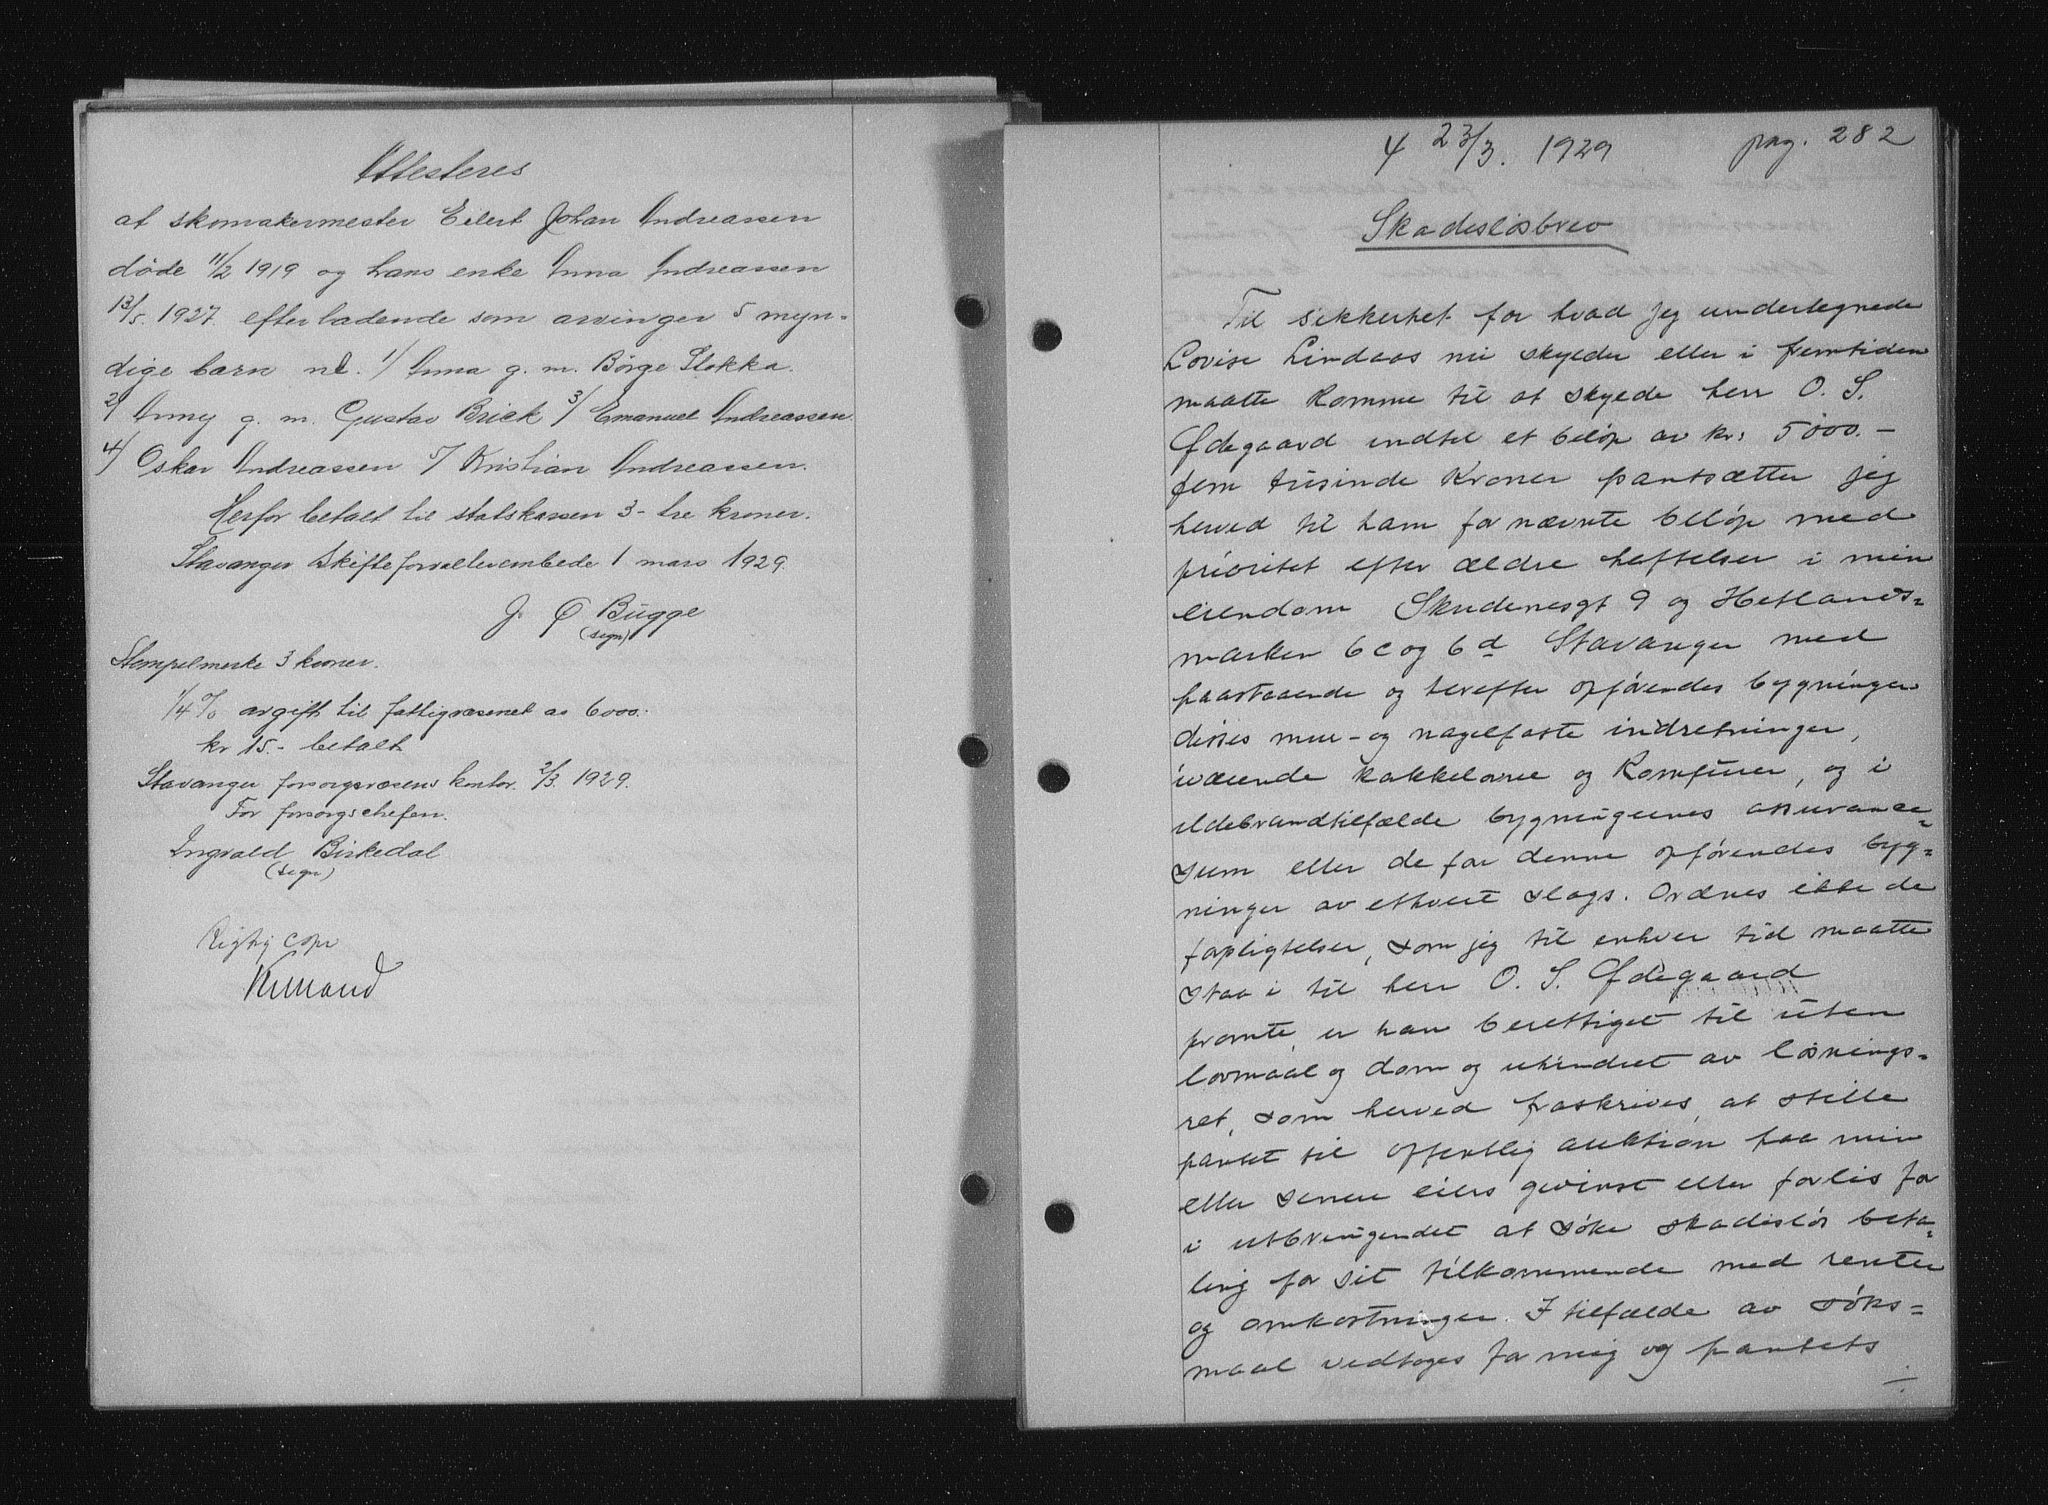 Attesteres
at skomakermester Eilert Johan Andreassen
døde 11/2 1919 og hans enke Anna Andreassen
13/5. 1927 efterladende som arvinger 5 myn-
dige barn nl. 1/ Anna g. m. Börge Stokka.
2/ Anny g. m. Gustav Brick 3/ Emanuel Andreassen.
4/ Oskar Andreassen 5/ Kristian Andreassen.
Herfor betalt til statskassen 3- tre kroner.
Stavanger Skifteforvalterembede 1 mars 1929.
J. C Bügge
(sign)
Stempelmerke 3 kroner.
1/4 % avgift til fattigvæsenet av 6000.
kr 15.- betalt
Stavanger forsorgsvæsens kontor 2/3. 1929.
For forsorgschefen.
Ingvald Birkedal
(sign)
Rigtig copi
4 23/3. 1929 pag. 282
Skadesløsbrev
Til sikkerhet for hvad jeg undertegnede
Lovise Lindaas nu skylder eller i fremtiden
maatte komme til at skylde herr O. S.
Ødegaard indtil et beløp av kr: 5000.-
fem tusinde kroner pantsætter jeg
herved til ham for nævnte beløp med
prioritet efter ældre heftelser i min
eiendom Skudenesgt 9 og Hetlands=
marken 6c og 6d Stavanger med
paastaaende og herefter opførendes bygninger
disses mur- og nagelfaste indretninger,
iværende kakkelovne og komfurer, og i
ildebrandtilfælde bygningernes assurance=
sum eller de for denne opførendes byg=
ninger av ethvert slags. Ordnes ikke de
forpligtelser, som jeg til enhver tid maatte
staa i til herr O. S. Ødegaard
promte, er han berettiget til uten
lovmaal og dom og uhindret av løsnings=
ret, som herved fraskrives, at stille
pantet til offentlig auktion paa min
eller senere eiers gevinst eller forlis for
i utbringendet at søke skadesløs beta=
ling for sit tilkommende med renter
og omkostninger. I tilfælde av søks=
maal vedtages for mig og pantets